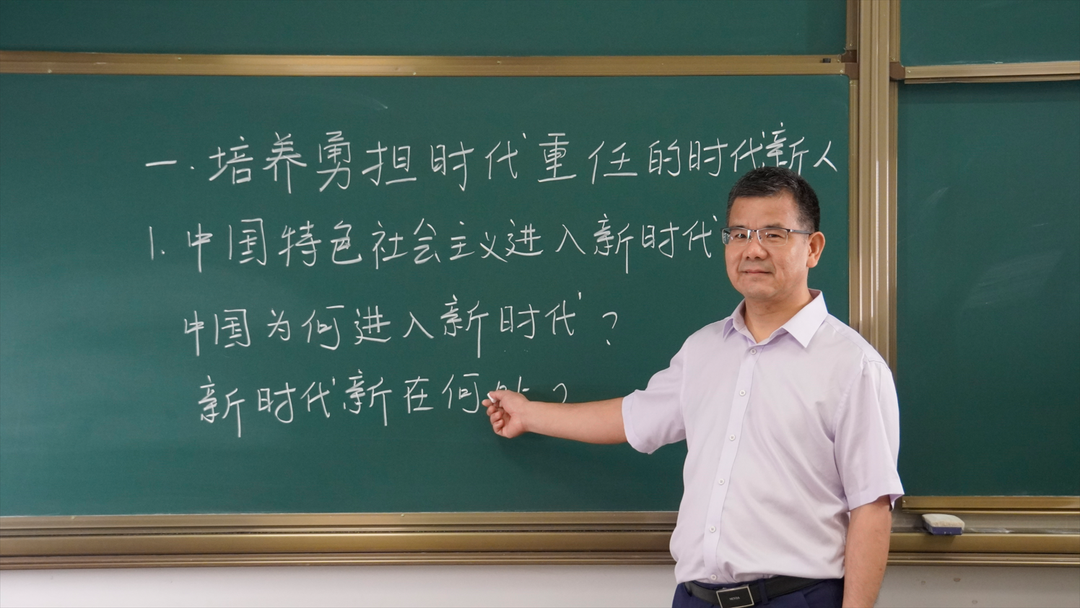 一.培养勇担时代重任的时代新人
1.中国特色社会主义进入新时代
中国为何进入新时代?
新时代新在何?